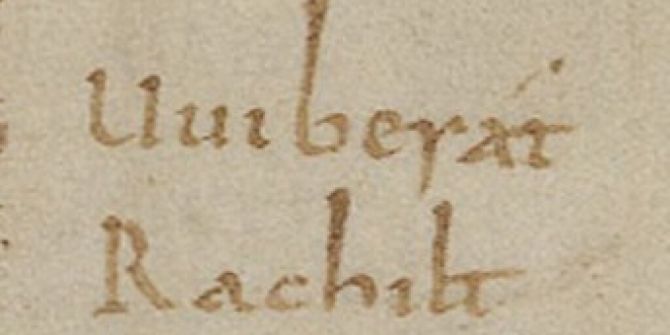 Uuiberat
Rachilt